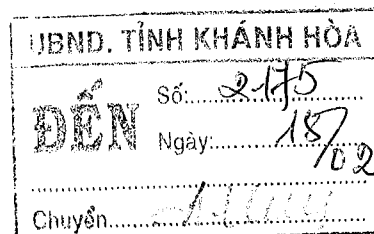 UBND. TỈNH KHÁNH HÒA
ĐẾN
Số:.....2175
Ngày:.....15/02
Chuyển.....